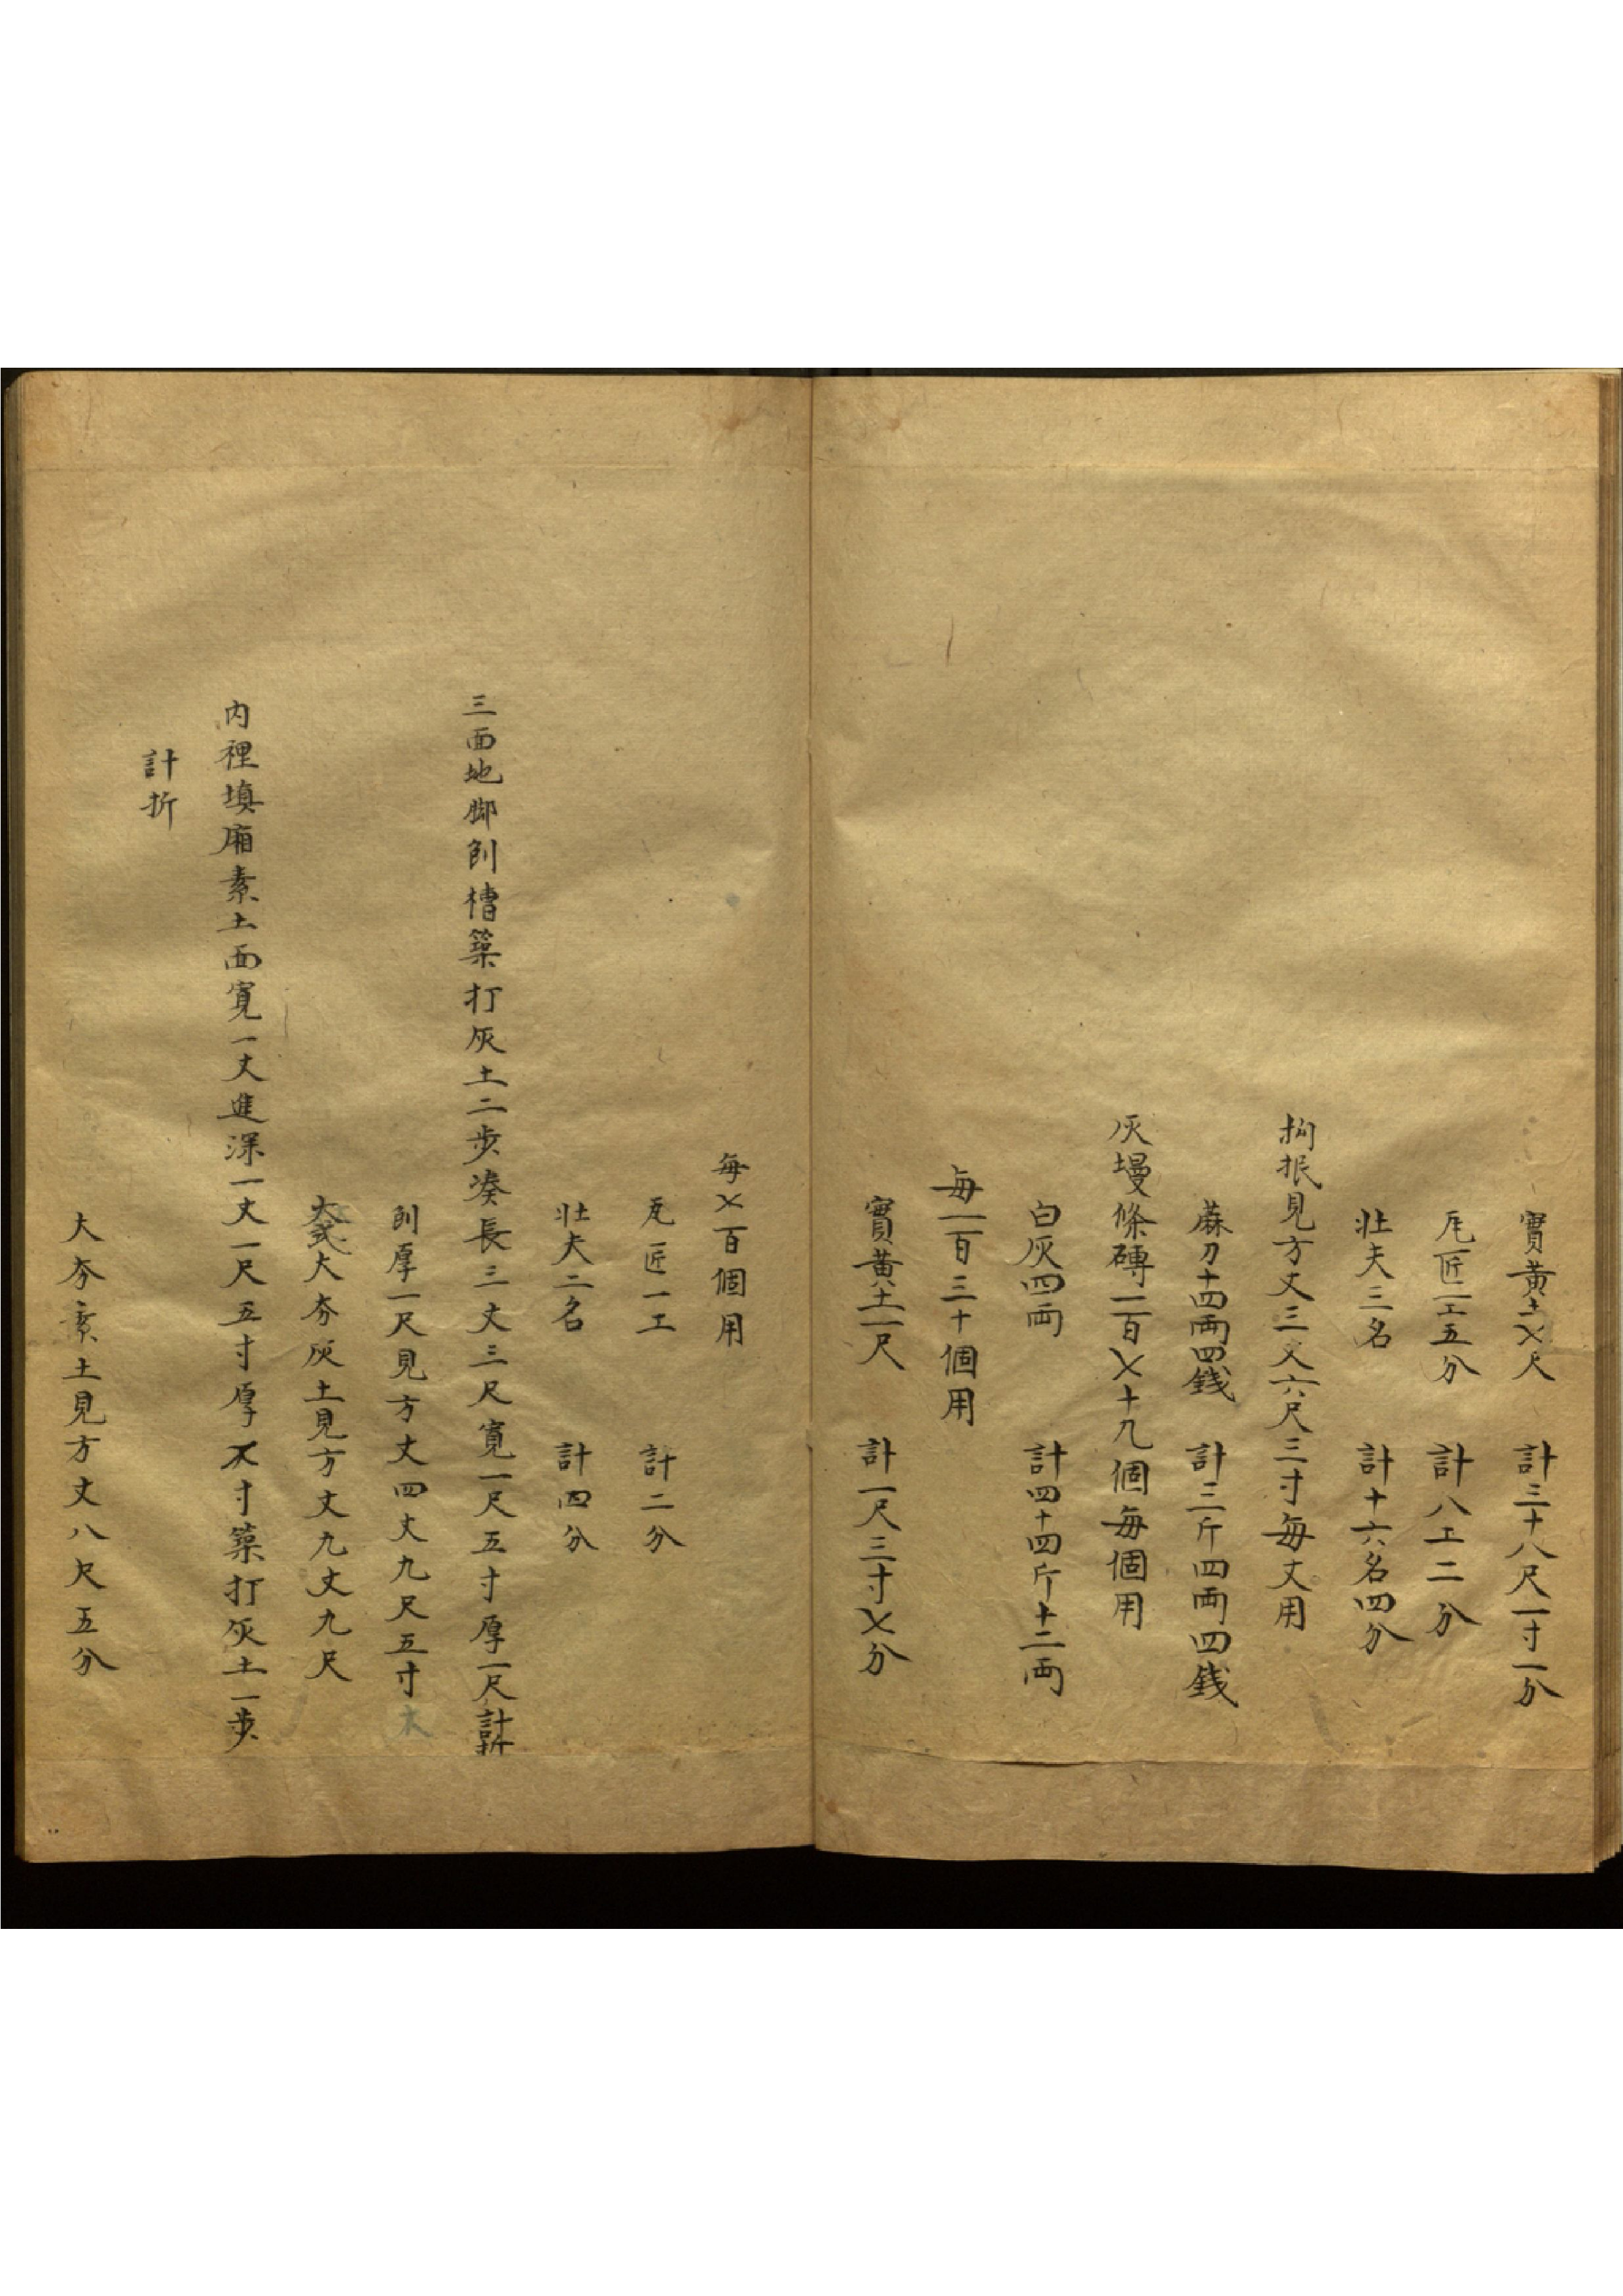 實黃土七尺　計三十八尺一寸一分
瓦匠一工五分　計八工二分
壯夫三名　計十六名四分
拘抿見方丈三丈六尺三寸每丈用
蔴刀十四兩四錢　計三斤四兩四錢
灰墁條磚一百七十九個每個用
白灰四兩　計四十四斤十二兩
每一百三十個用
實黃土一尺　計一尺三寸七分
每七百個用
瓦匠一工　計二分
壯夫二名　計四分
三面地脚刨槽築打灰土二步湊長三丈三尺寬一尺五寸厚一尺計折
刨厚一尺見方丈四丈九尺五寸
大夯灰土見方丈九丈九尺
内裡填廂素土面寬一丈進深一丈一尺五寸厚七寸築打灰土一步
計折
大夯素土見方丈八尺五分